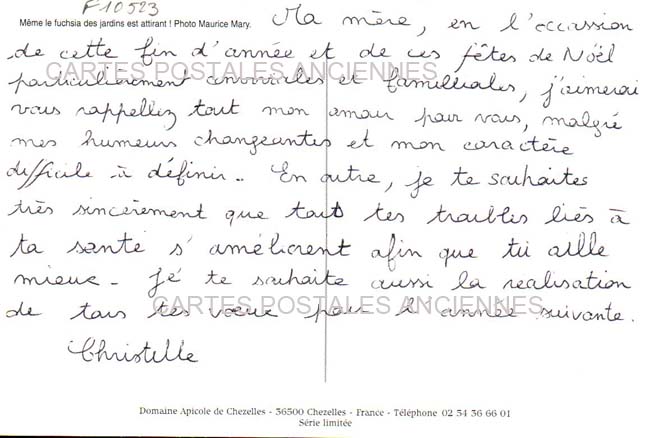 F10523
Même le fuchsia des jardins est attirant ! Photo Maurice Mary.
Ma mère, en l'occassion
de cette fin d'année et de ces fêtes de Noël
CARTES POSTALES ANCIENNES
particulièrement conviviales et familliales, j'aimerai
vous rappellez tout mon amour pour vous, malgré
mes humeurs changeantes et mon caractère
difficile à définir.. En outre, je te souhaites
très sincèrement que tout tes troubles liés à
ta santé s'améliorent afin que tu aille
mieux - Je te souhaite aussi la realisation
CARTES POSTALES ANCIENNES
de tous tes vœux pour l'année suivante.
Christelle
Domaine Apicole de Chezelles - 36500 Chezelles - France - Téléphone 02 54 36 66 01
Série limitée